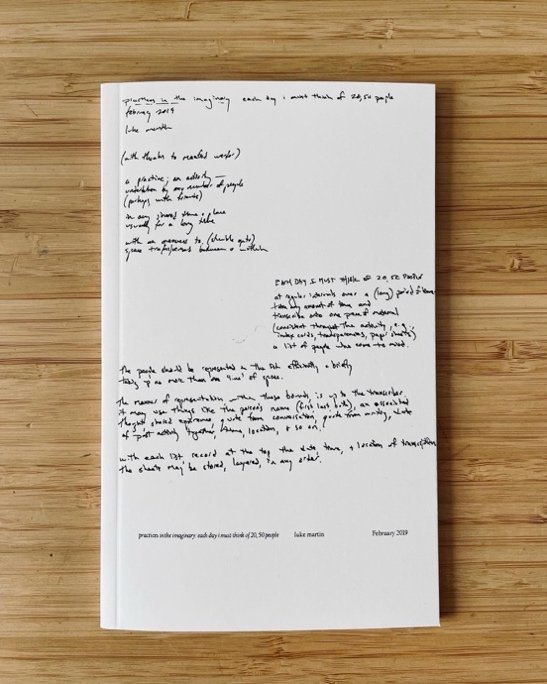 practices in the imaginary each day i must think of 20, 50 people
february 2019
luke martin
(with thanks to manfred werder)
a practice; an activity —
undertaken by any number of people
(perhaps with friends)
in any shared time + place
usually for a long time
with an openness to (
space between + within
EACH DAY I MUST THINK OF 20, 50 PEOPLE
at regular intervals over a (long) period of time
take any amount of time and
transcribe onto one piece of material
(consistent throughout the activity, e.g.,
index cards, transparencies, paper sheets)
a list of people who come to mind.
The people should be represented in the list efficiently + briefly
taking up no more than one "line" of space.
The manner of representation within these bounds is up to the transcriber.
it may use things like the person's name (first last both), an associated
thought, shared experience, quote from conversation, quote from writing, date
of past activity together, location, + so on.
with each list record at the top the date, time, + location of transcription
the sheets may be stored, layered, in any order.
practices in the imaginary: each day i must think of 20, 50 people luke martin February 2019